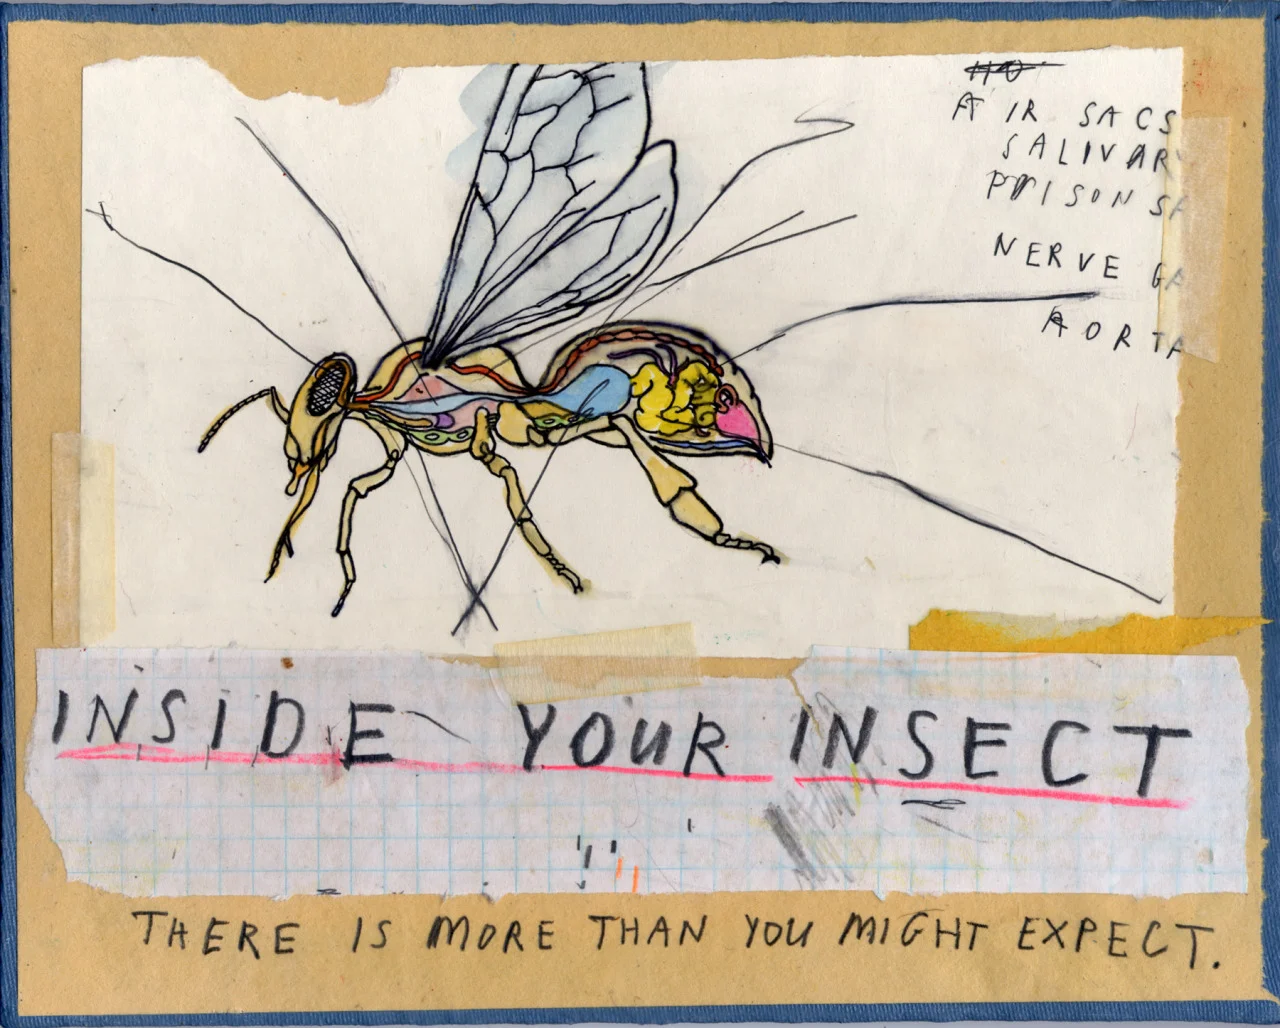 AIR SACS
SALIVARY
POISON SA
NERVE GA
AORTA
INSIDE YOUR INSECT
THERE IS MORE THAN YOU MIGHT EXPECT.